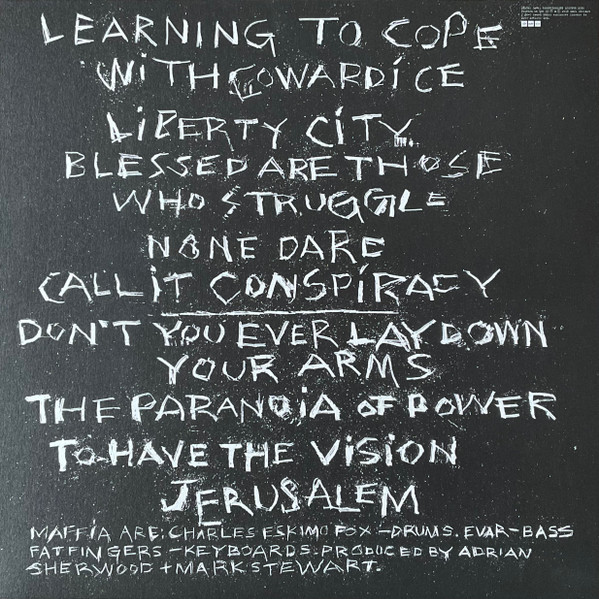 LEARNING TO COPE
WITH COWARDICE
LIBERTY CITY.
BLESSED ARE THOSE
WHO STRUGGLE
NONE DARE
CALL IT CONSPIRACY
DON'T YOU EVER LAY DOWN
YOUR ARMS
THE PARANOIA OF POWER
TO HAVE THE VISION
JERUSALEM
MAFFIA ARE: CHARLES ESKIMO FOX – DRUMS. EVAR – BASS
FATFINGERS – KEYBOARDS. PRODUCED BY ADRIAN
SHERWOOD + MARK STEWART.